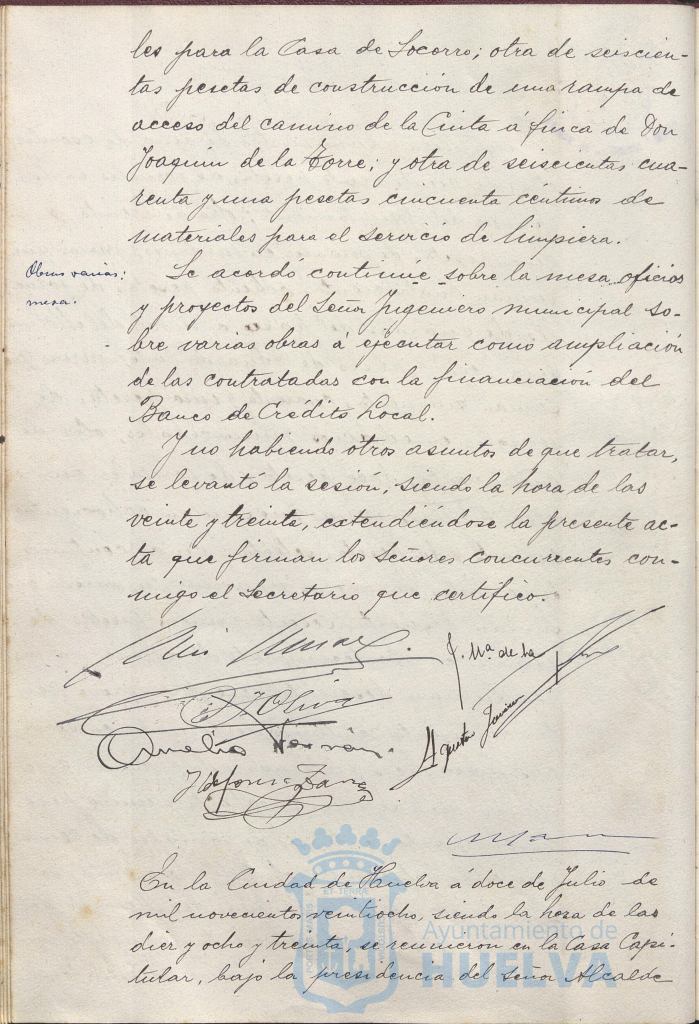 les para la Casa de Socorro; otra de seiscien-
tas pesetas de construcción de una rampa de
acceso del camino de la Cinta á finca de Don
Joaquin de la Torre; y otra de seiscientas cua-
renta y una pesetas cincuenta céntimos de
materiales para el servicio de limpiera.
Obras varias:
mesa.
Se acordó continúe sobre la mesa oficios
y proyectos del Señor Ingeniero municipal so-
bre varias obras á ejecutar como ampliación
de las contratadas con la financiación del
Banco de Crédito Local.
Y no habiendo otros asuntos de que tratar,
se levantó la sesión, siendo la hora de las
veinte y treinta, extendiéndose la presente ac-
ta que firman los Señores concurrentes con-
migo el Secretario que certifico.
J. Mª de la
Oliva
Aurelio
Agustin
Ildefonso
En la Ciudad de Huelva á doce de Julio de
mil novecientos veintiocho, siendo la hora de las
diez y ocho y treinta, se reunieron en la Casa Capi-
tular, bajo la presidencia del Señor Alcalde
Ayuntamiento de
HUELVA